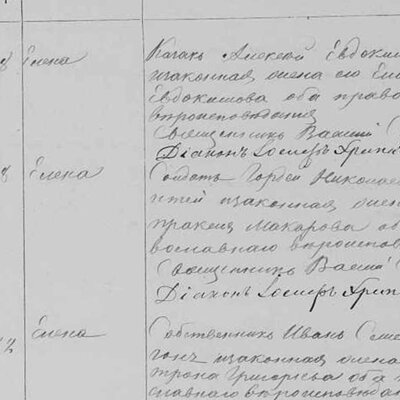 Елена
Казакъ Алексей Евдоким
изаконная жена его Ел
Евдокимова оба право
вероисповедания
Священникъ Васили
Діаконъ Іосифъ Хрип
Елена
Солдатъ Гордей Николае
изаконная жена
Макарова об
вославнаго вероиспов
Священникъ Васили
Діаконъ Іосифъ Хрип
12
Елена
Собственникъ Иванъ Семе
изаконная жена
Григорьева оба
славнаго вероисповедан